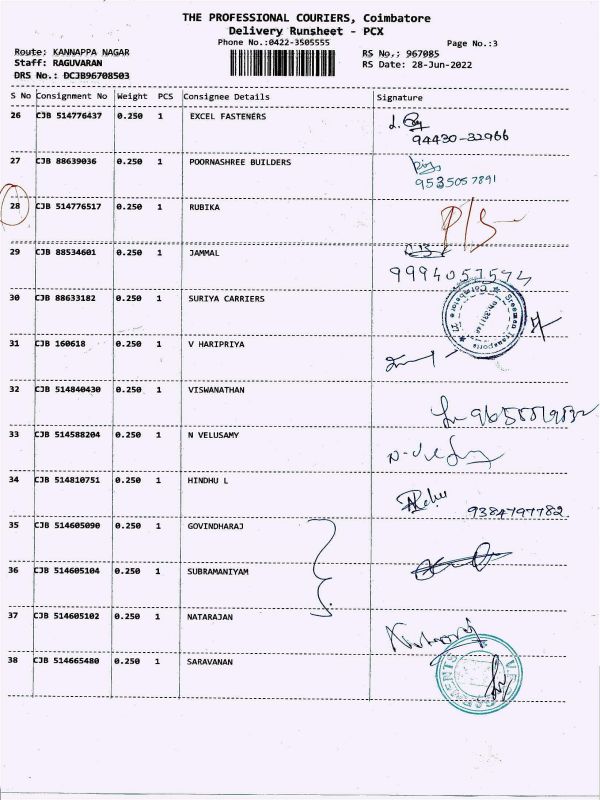 THE PROFESSIONAL COURIERS, Coimbatore
Delivery Runsheet - PCX
Phone No.:0422-3505555
Page No.:3
Route: KANNAPPA NAGAR
RS No.: 967085
Staff: RAGUVARAN
RS Date: 28-Jun-2022
DRS No.: DCJB96708503
S No Consignment No Weight PCS Consignee Details Signature
26 CJB 514776437 0.250 1 EXCEL FASTENERS
94430-32966
27 CJB 88639036 0.250 1 POORNASHREE BUILDERS
9535057891
28 CJB 514776517 0.250 1 RUBIKA
P/S
29 CJB 88534601 0.250 1 JAMMAL
9994057574
30 CJB 88633182 0.250 1 SURIYA CARRIERS
31 CJB 160618 0.250 1 V HARIPRIYA
32 CJB 514840430 0.250 1 VISWANATHAN
33 CJB 514588204 0.250 1 N VELUSAMY
34 CJB 514810751 0.250 1 HINDHU L
9384797782
35 CJB 514605090 0.250 1 GOVINDHARAJ
36 CJB 514605104 0.250 1 SUBRAMANIYAM
37 CJB 514605102 0.250 1 NATARAJAN
38 CJB 514665480 0.250 1 SARAVANAN